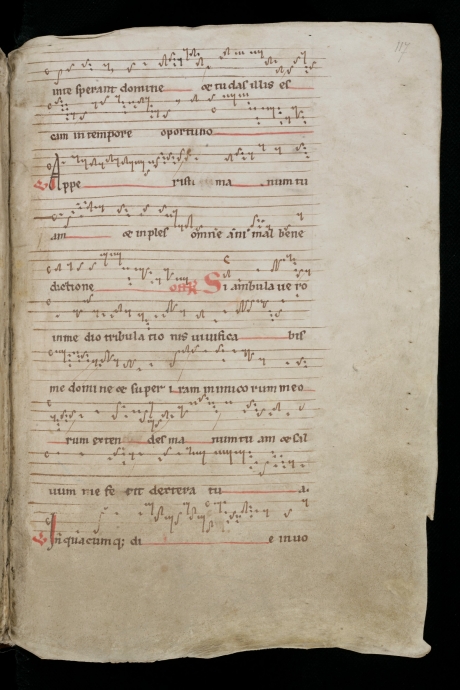 117
inte sperant domine & tu das illis es
cam in tempore oportuno
Appe risti ma num tu
am & imples omne ani mal bene
dictione Off Si ambula ue ro
in me dio tribula tio nis uiuifica bis
me domi ne & super iram inimico rum meo
rum exten des ma num tu am & sal
uum me fe cit dextera tu a
In quacumq; di e inuo